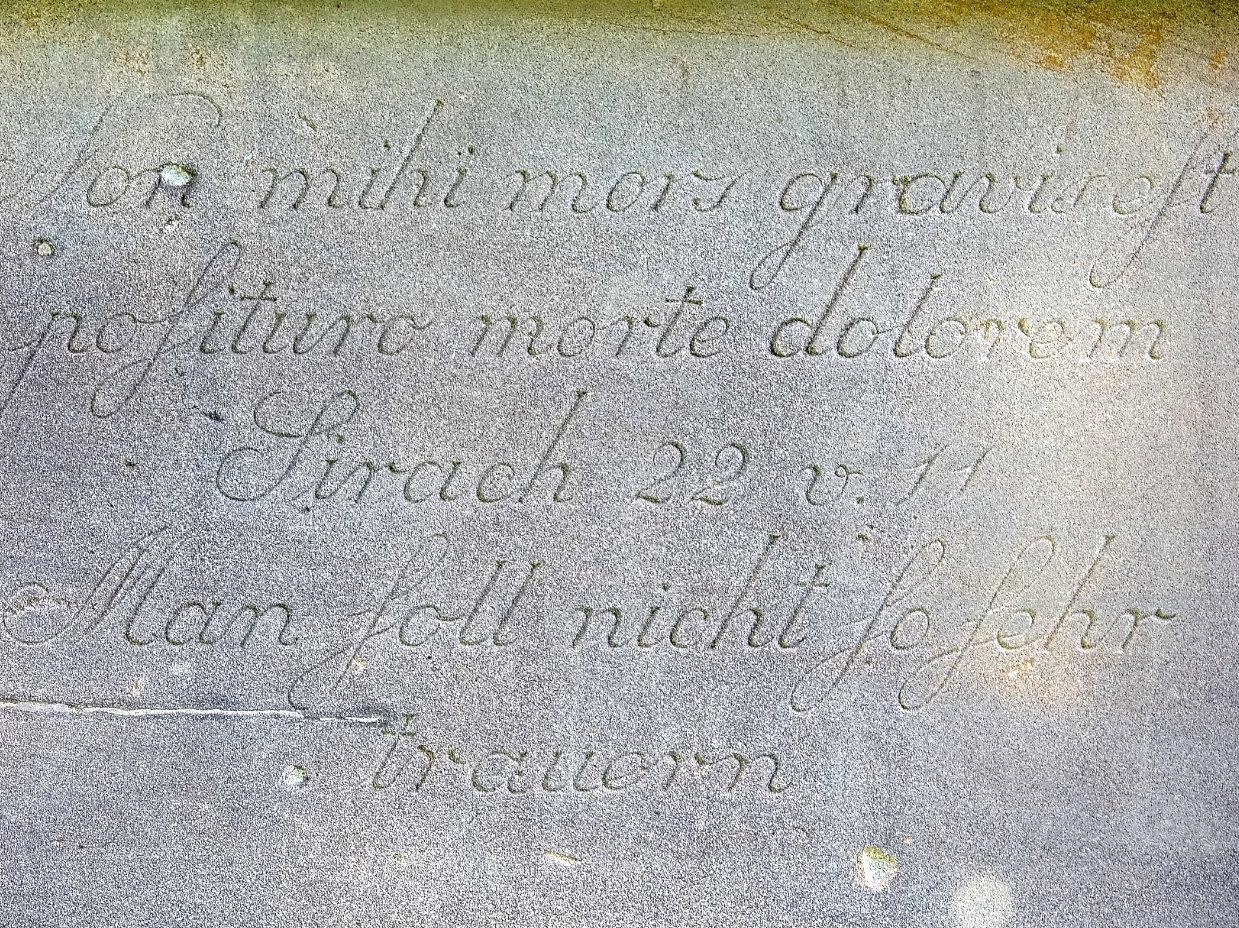 Non mihi mors gravis est
poſituro morte dolorem
Sirach 22 v. 11
Man ſoll nicht ſo ſehr
trauern